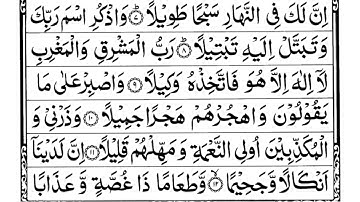 اِنَّ لَكَ فِى النَّهَارِ سَبْحًا طَوِيْلًا ۝۷ وَاذْكُرِ اسْمَ رَبِّكَ
وَتَبَتَّلْ اِلَيْهِ تَبْتِيْلًا ۝۸ رَبُّ الْمَشْرِقِ وَالْمَغْرِبِ
لَآ اِلٰهَ اِلَّا هُوَ فَاتَّخِذْهُ وَكِيْلًا ۝۹ وَاصْبِرْ عَلٰى مَا
يَقُوْلُوْنَ وَاهْجُرْهُمْ هَجْرًا جَمِيْلًا ۝۱۰ وَذَرْنِىْ وَ
الْمُكَذِّبِيْنَ اُولِى النَّعْمَةِ وَمَهِّلْهُمْ قَلِيْلًا ۝۱۱ اِنَّ لَدَيْنَآ
اَنْكَالًا وَّجَحِيْمًا ۝۱۲ وَّطَعَامًا ذَا غُصَّةٍ وَّعَذَابًا